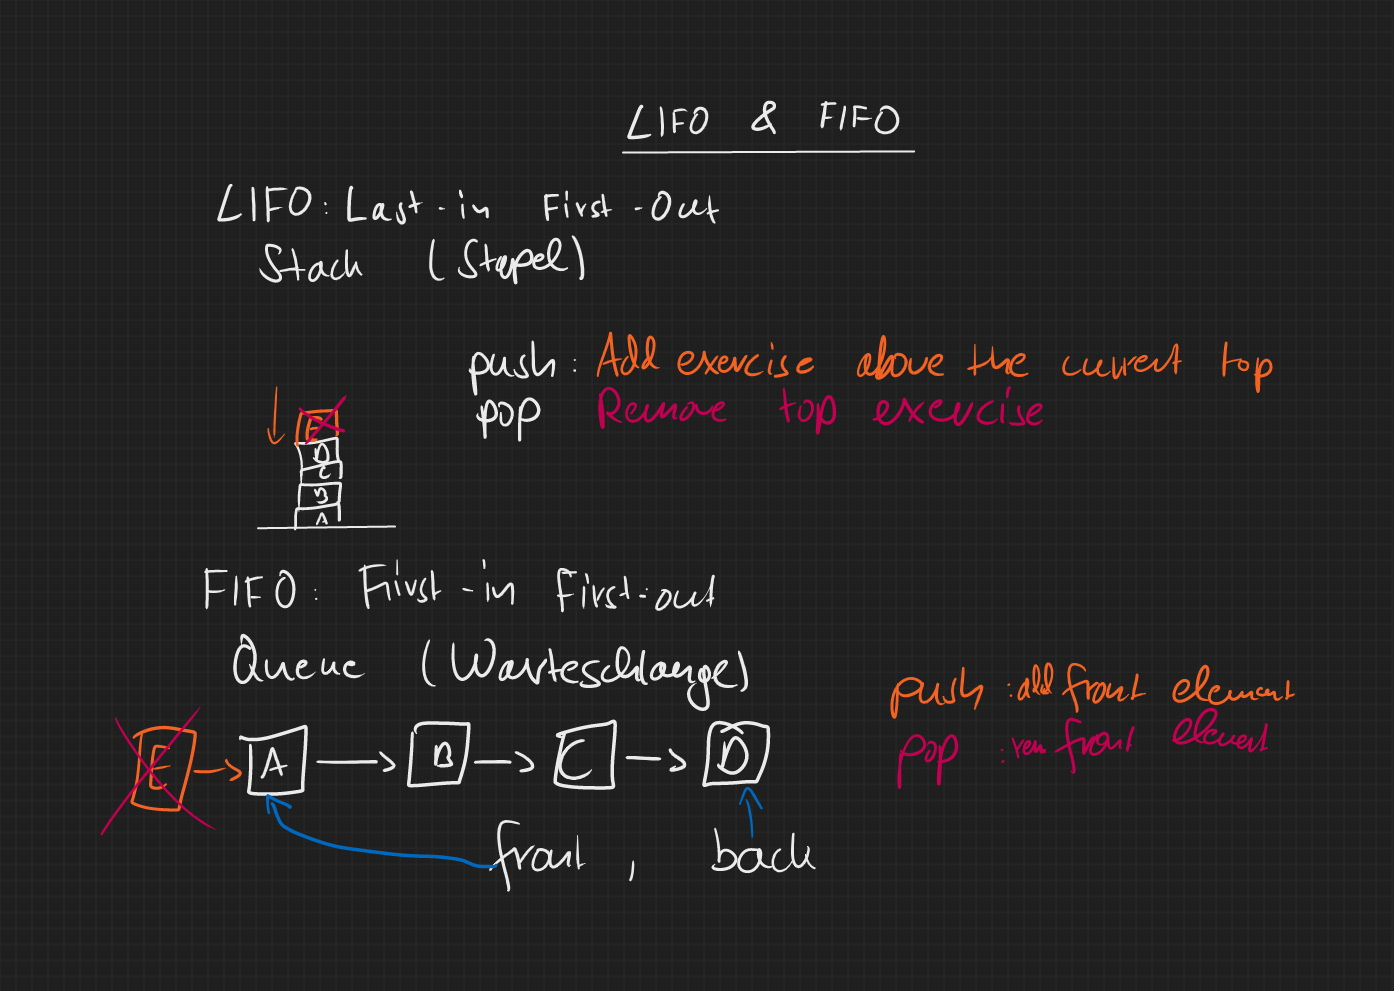 LIFO & FIFO
LIFO: Last-in First-Out
Stack (Stapel)
push: Add exercise above the current top
pop Remove top exercise
E
D
C
B
A
FIFO: First-in First-out
Queue (Warteschlange)
push: add front element
pop: rem front element
E A B C D
front, back